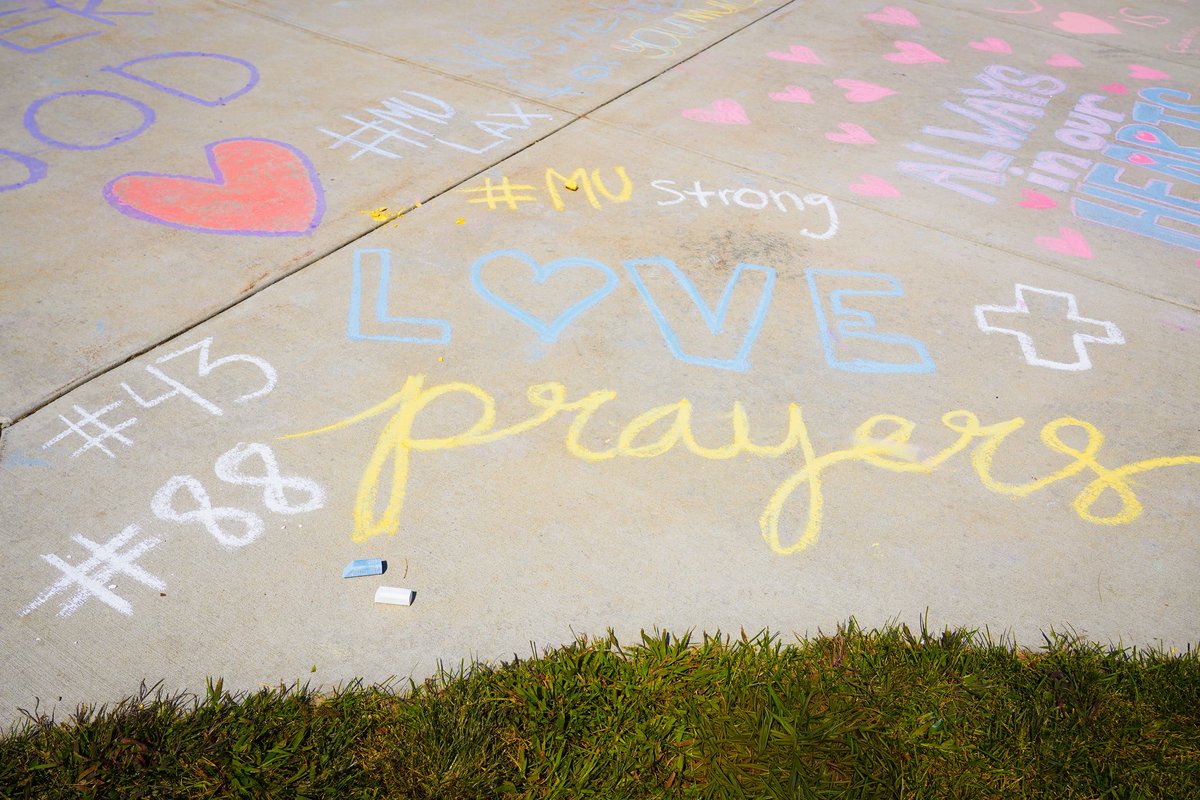 #MU
LAX
#MU Strong
LOVE +
prayers
#43
#88
ALWAYS
in our
HEARTS